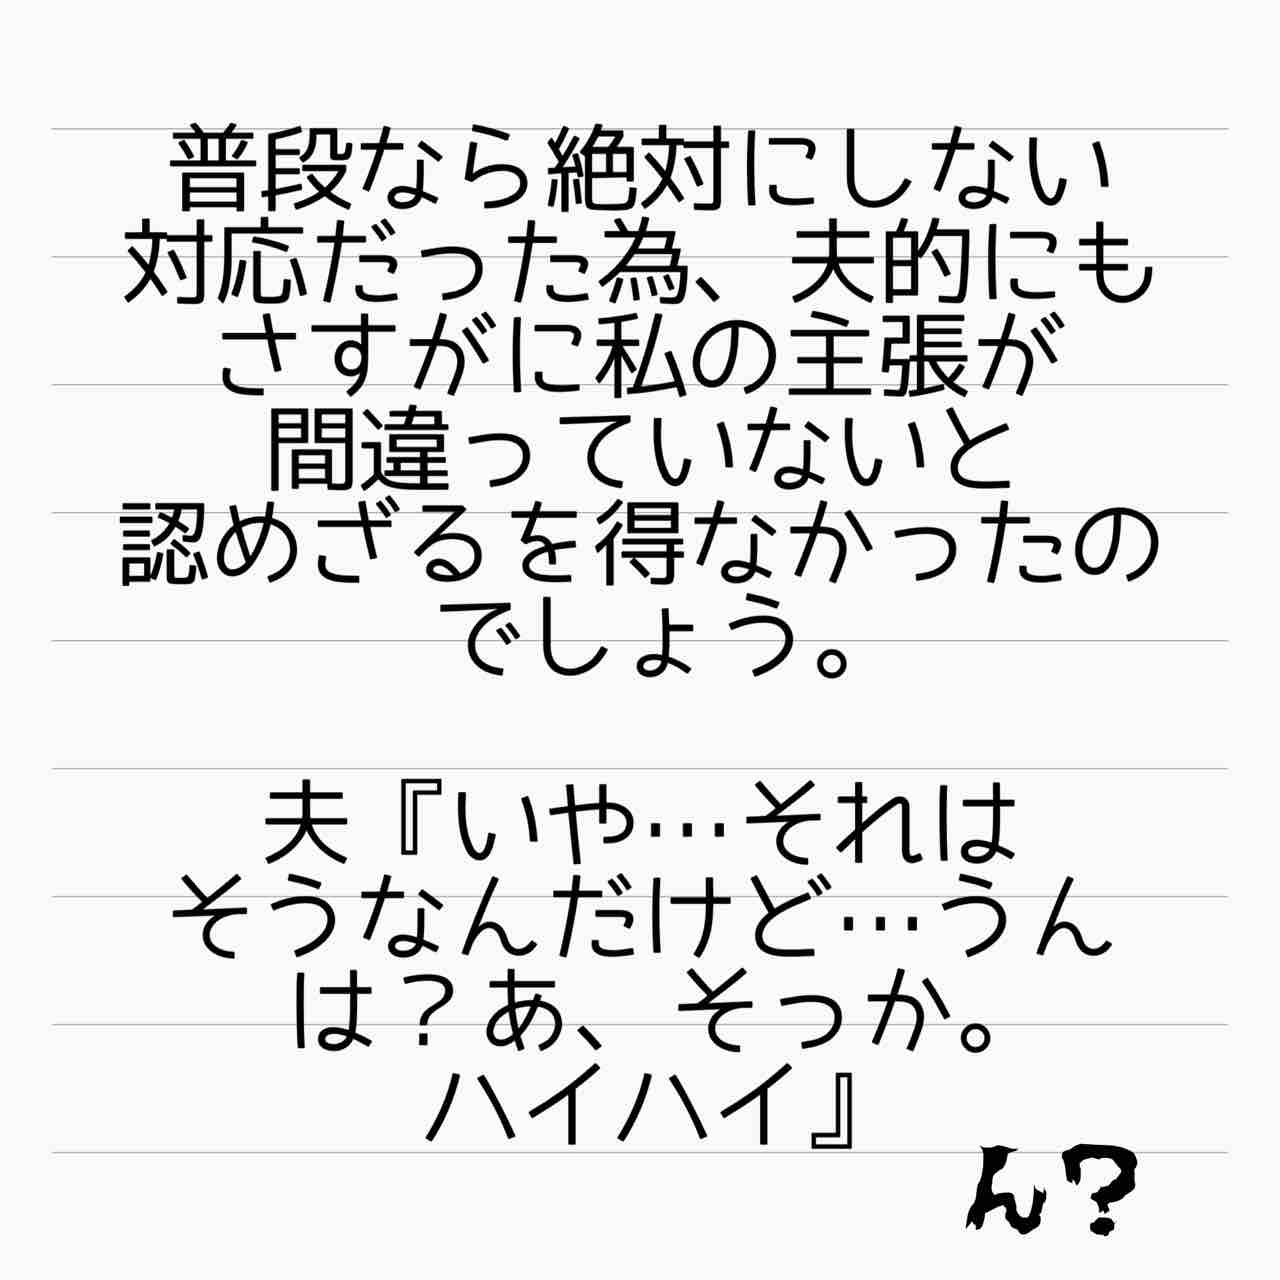 普段なら絶対にしない
対応だった為、夫的にも
さすがに私の主張が
間違っていないと
認めざるを得なかったの
でしょう。
夫『いや…それは
そうなんだけど…うん
は？あ、そっか。
ハイハイ』
ん？